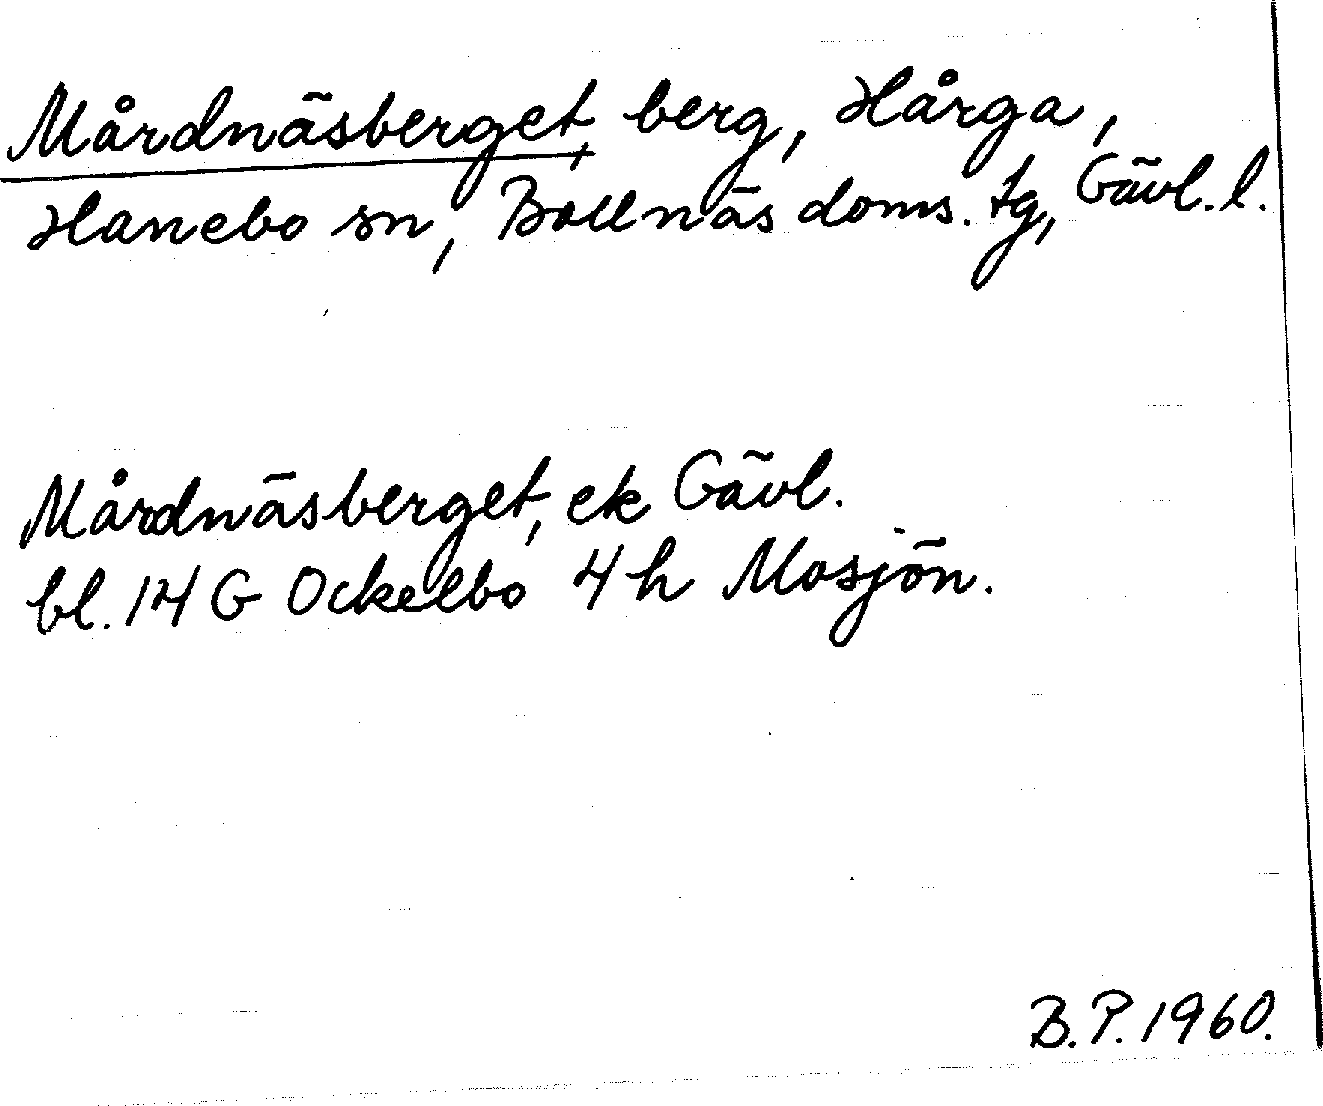 Mårdnäsberget, berg, Hårga,
Hanebo sn, Bollnäs doms. tg, Gävl. l.
Mårdnäsberget, ek Gävl.
bl. 14 G Ockelbo 4 h Mosjön.
B. P. 1960.